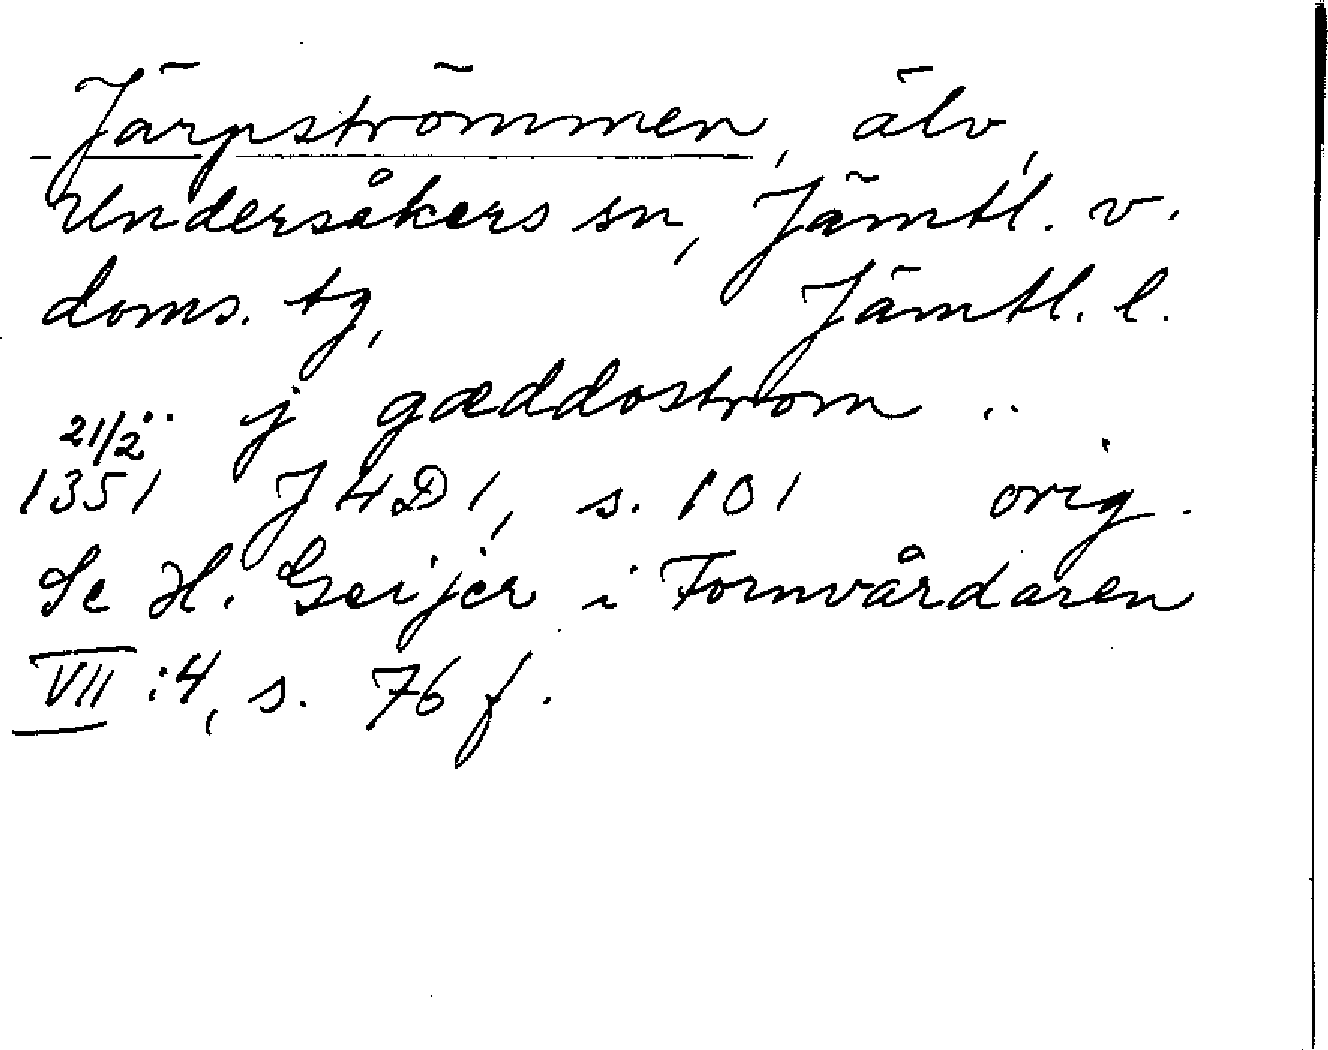 Järpströmmen, älv,
Undersåkers sn, Jämtl. v.
doms. tg, Jämtl. l.
.. j gæddostrom ..
21/2
1351 J4D1, s. 101 orig.
Se H. Geijer i Fornvårdaren
VII:4, s. 76 f.